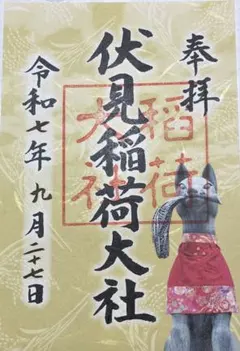 奉拝
伏見稲荷大社
稲荷
大社
令和七年九月二十七日